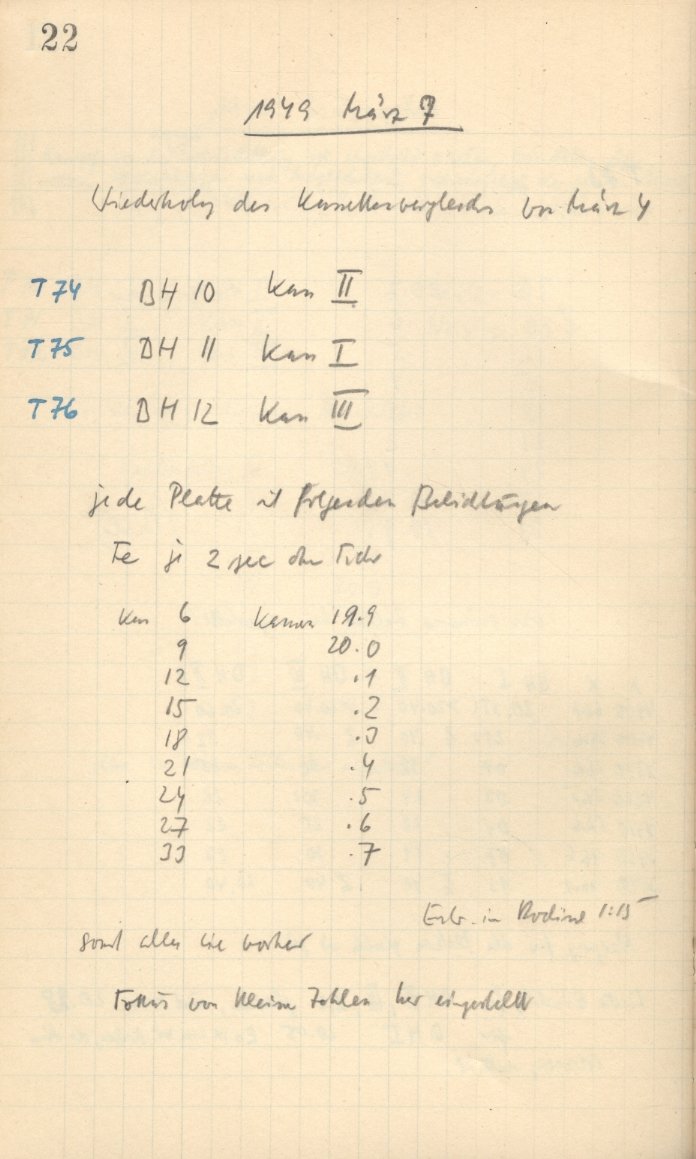 22
1949 März 7
Wiederholg des Kassettenvergleichs von März 4
T74 BH 10 Kass II
T75 BH 11 Kass I
T76 BH 12 Kass III
jede Platte mit folgenden Belichtungen
Fe je 2 sec ohne Filter
Kass 6 Kamera 19.9
9 20.0
12 .1
15 .2
18 .3
21 .4
24 .5
27 .6
33 .7
Entw. in Rodinal 1:15
sonst alles wie vorher
Fokus von kleinen Zahlen her eingestellt